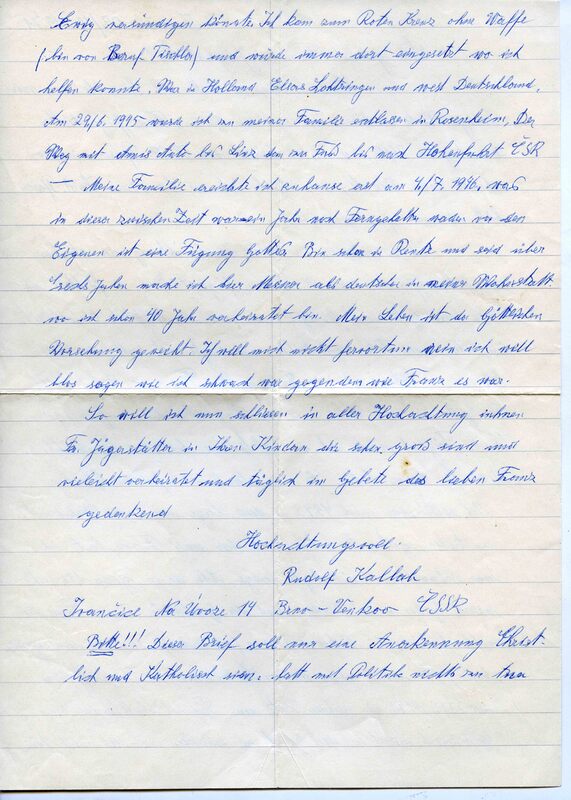 Ewig versündigen könnte. Ich kam zum Roten Kreuz ohne Waffe
(bin von Beruf Tischler) und würde immer dort eingesetzt wo ich
helfen konnte. War in Holland Elsas Lothringen und west Deutschland.
Am 29/6. 1945 wurde ich zu meiner Familie entlassen in Rosenheim, Der
Weg mit Amis Auto bis Linz dann zu Fuß bis nach Hohenfurt ČSR
— Meine Familie ereichte ich zuhause erst am 4/7. 1946. was
in dieser zwischen Zeit war ein Jahr noch von den
Eigenen ist eine Fügung Gottes Bin schon in Rente und seid über
Sechs Jahren mache ich hier Mesner als deutscher in meiner
wo ich schon 40 Jahr verheiratet bin. Mein Leben ist der Göttlichen
Vorsehung geweiht. Ich will mich nicht nein ich will
blos sagen wie ich schwach war gegendem wie Franz es war.
So will ich nun schlissen in aller Hochachtung ihnen
Fr. Jägerstätter in Ihren Kindern die schon groß sind und
vieleicht verheiratet und täglich im Gebete des lieben Franz
gedenkend
Hochachtungsvoll.
Rudolf Kallah
Ivančice Na Úvoze 14 Brno – Venkov ČSSR
Bitte!!! Dieser Brief soll nur eine Anerkennung Christ-
lich und Katholisch sein. hatt mit Politik nichts zu tun